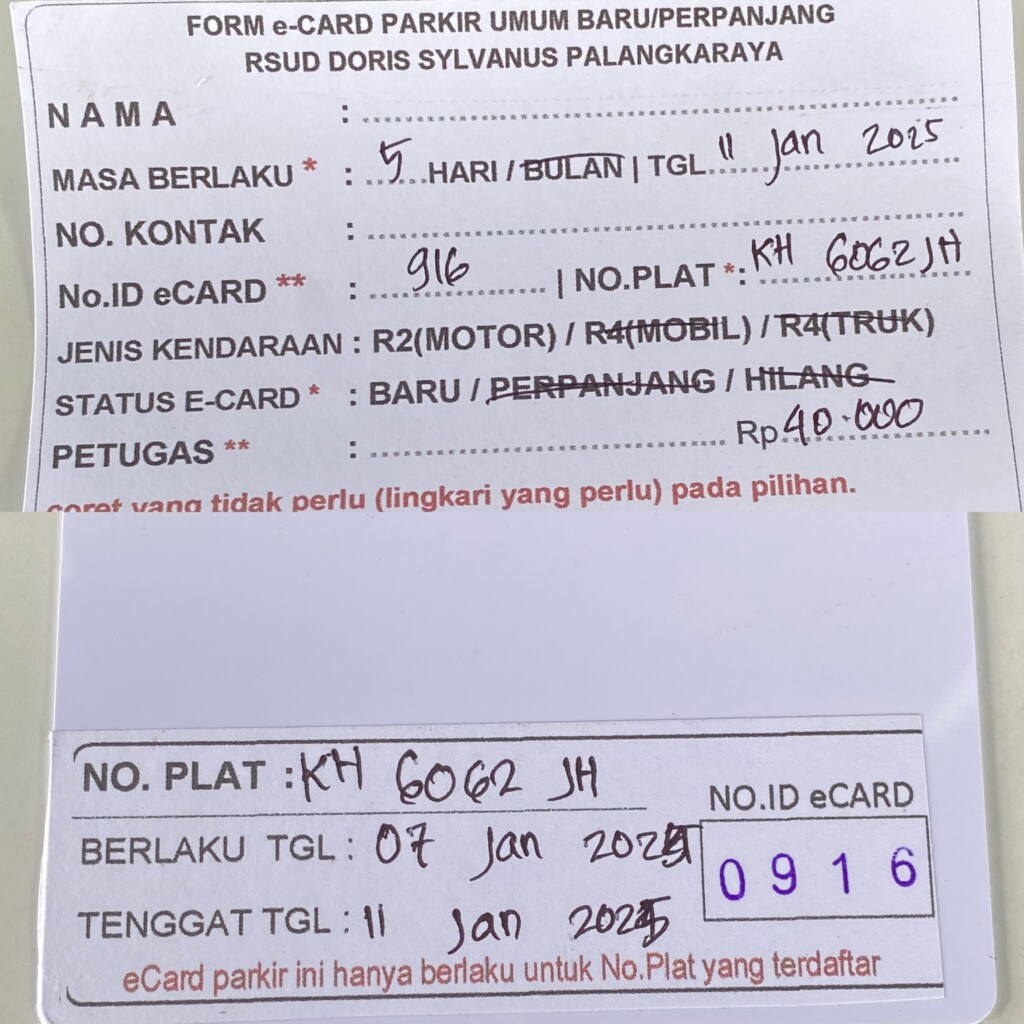 FORM e-CARD PARKIR UMUM BARU/PERPANJANG
RSUD DORIS SYLVANUS PALANGKARAYA
N A M A :
MASA BERLAKU * : 5 HARI / BULAN | TGL. 11 Jan 2025
NO. KONTAK :
No.ID eCARD ** : 916 | NO.PLAT *: KH 6062 JH
JENIS KENDARAAN : R2(MOTOR) / R4(MOBIL) / R4(TRUK)
STATUS E-CARD * : BARU / PERPANJANG / HILANG
PETUGAS ** : Rp 40.000
coret yang tidak perlu (lingkari yang perlu) pada pilihan.
NO. PLAT : KH 6062 JH
NO.ID eCARD
BERLAKU TGL : 07 Jan 2025
0916
TENGGAT TGL : 11 Jan 2025
eCard parkir ini hanya berlaku untuk No.Plat yang terdaftar